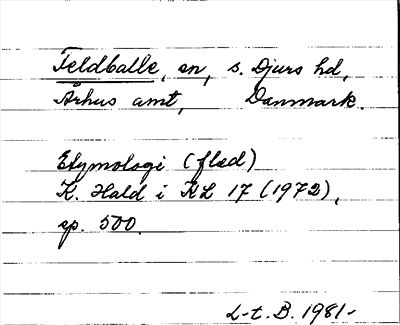 Feldballe, sn, s. Djurs hd,
Århus amt, Danmark.
Etymologi (fled)
K. Hald i KL 17 (1972),
sp. 500.
L-t. B. 1981-